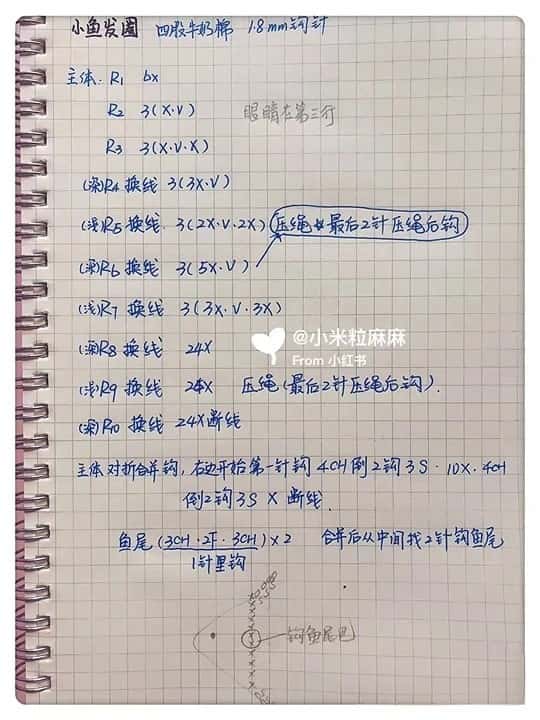 小鱼发圈 四股牛奶棉 1.8mm钩针
主体: R1 6x
R2 3(X·V) 眼睛在第三行
R3 3(X·V·X)
(深)R4 换线 3(3X·V)
(浅)R5 换线 3(2X·V·2X) 压绳 最后2针压绳后钩
(深)R6 换线 3(5X·V)
(浅)R7 换线 3(3X·V·3X)
(深)R8 换线 24X
(浅)R9 换线 24X 压绳(最后2针压绳后钩)
(深)R10 换线 24X断线
@小米粒麻麻
From 小红书
主体对折合并钩，右边开始第一针钩4CH倒2钩3S·10X·4CH
倒2钩3S X 断线
鱼尾(3CH·2F·3CH)×2 合并后从中间找2针钩鱼尾
1针里钩
钩鱼尾巴